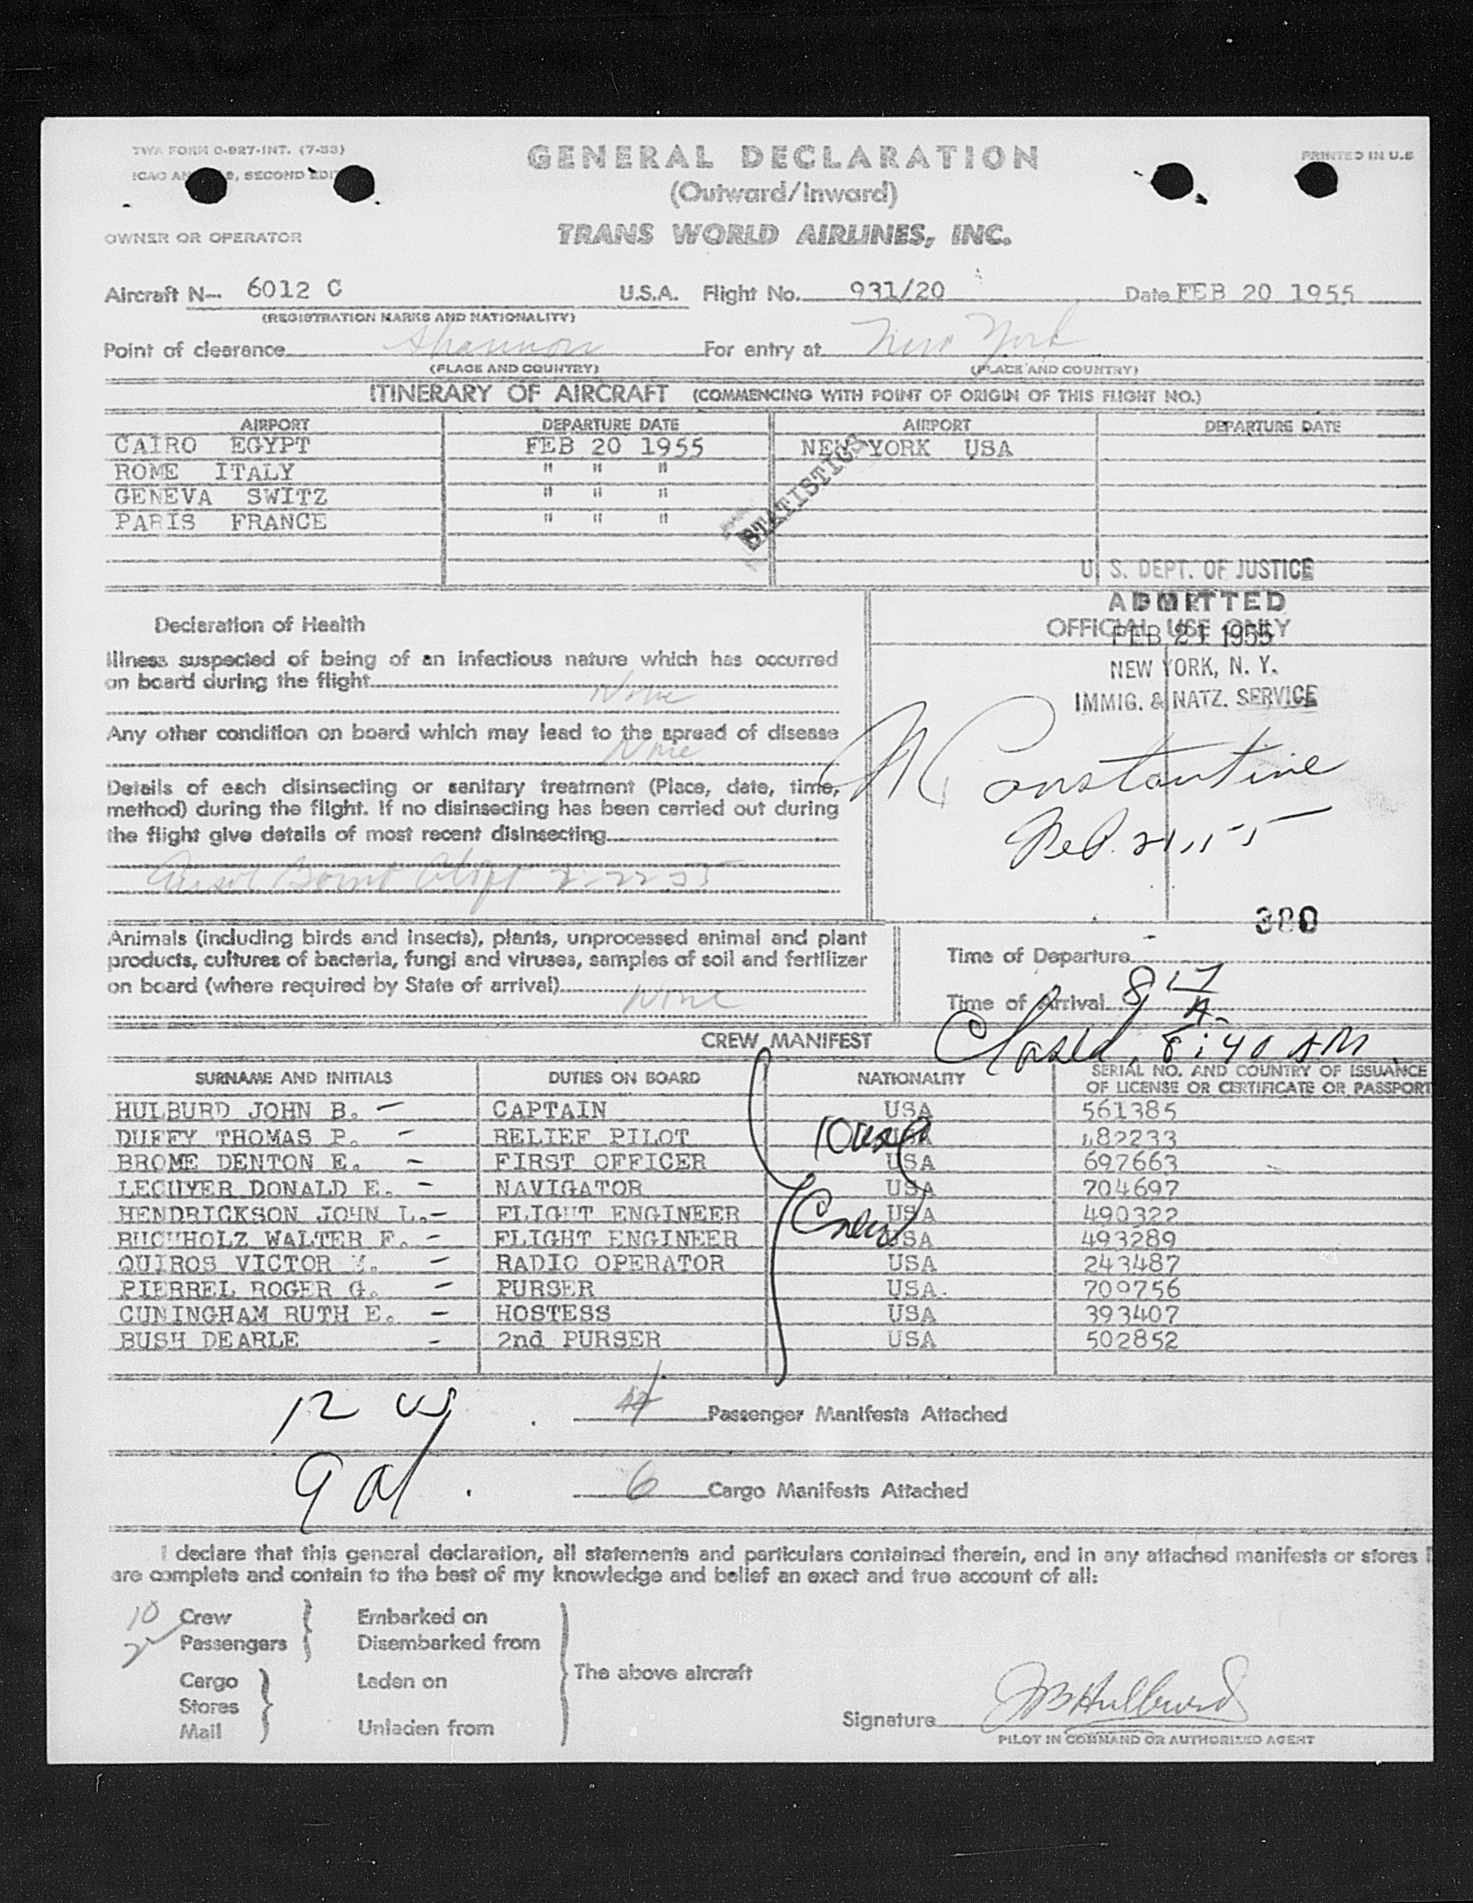 TWA FORM O-927-INT. (7-53)
GENERAL DECLARATION
PRINTED IN U.S
ICAO AN 9, SECOND EDI
(Outward/Inward)
OWNER OR OPERATOR
TRANS WORLD AIRLINES, INC.
Aircraft N— 6012 C U.S.A. Flight No. 931/20 Date FEB 20 1955
(REGISTRATION MARKS AND NATIONALITY)
Point of clearance Shannon For entry at New York
(PLACE AND COUNTRY) (PLACE AND COUNTRY)
ITINERARY OF AIRCRAFT (COMMENCING WITH POINT OF ORIGIN OF THIS FLIGHT NO.)
AIRPORT DEPARTURE DATE AIRPORT DEPARTURE DATE
CAIRO EGYPT FEB 20 1955 NEW YORK USA
ROME ITALY " " "
GENEVA SWITZ " " "
PARIS FRANCE " " "
STATISTICS
U. S. DEPT. OF JUSTICE
ADMITTED
OFFICIAL USE ONLY
FEB 21 1955
NEW YORK, N. Y.
IMMIG. & NATZ. SERVICE
Declaration of Health
Illness suspected of being of an infectious nature which has occurred
on board during the flight None
Any other condition on board which may lead to the spread of disease
None
Details of each disinsecting or sanitary treatment (Place, date, time,
method) during the flight. If no disinsecting has been carried out during
the flight give details of most recent disinsecting
Constantine
Feb. 21, 55
380
Animals (including birds and insects), plants, unprocessed animal and plant
products, cultures of bacteria, fungi and viruses, samples of soil and fertilizer
on board (where required by State of arrival) None
Time of Departure
Time of Arrival 8 17 A.
Closed 8:40 AM
CREW MANIFEST
SURNAME AND INITIALS DUTIES ON BOARD NATIONALITY SERIAL NO. AND COUNTRY OF ISSUANCE
OF LICENSE OR CERTIFICATE OR PASSPORT
HULBURD JOHN B. — CAPTAIN USA 561385
DUFFY THOMAS P. — RELIEF PILOT USA 482233
BROME DENTON E. — FIRST OFFICER USA 697663
LECUYER DONALD E. — NAVIGATOR USA 704697
HENDRICKSON JOHN L. — FLIGHT ENGINEER USA 490322
BUCHHOLZ WALTER F. — FLIGHT ENGINEER USA 493289
QUIROS VICTOR — RADIO OPERATOR USA 243487
PIERREL ROGER G. — PURSER USA. 709756
CUNINGHAM RUTH E. — HOSTESS USA 393407
BUSH DEARLE — 2nd PURSER USA 502852
10 usc
Crew
12 us
Passenger Manifests Attached
9 al
6 Cargo Manifests Attached
I declare that this general declaration, all statements and particulars contained therein, and in any attached manifests or stores
are complete and contain to the best of my knowledge and belief an exact and true account of all:
10 Crew Embarked on
2 Passengers Disembarked from
The above aircraft
Cargo Laden on
Stores
Mail Unladen from
Signature JB Hulburd
PILOT IN COMMAND OR AUTHORIZED AGENT